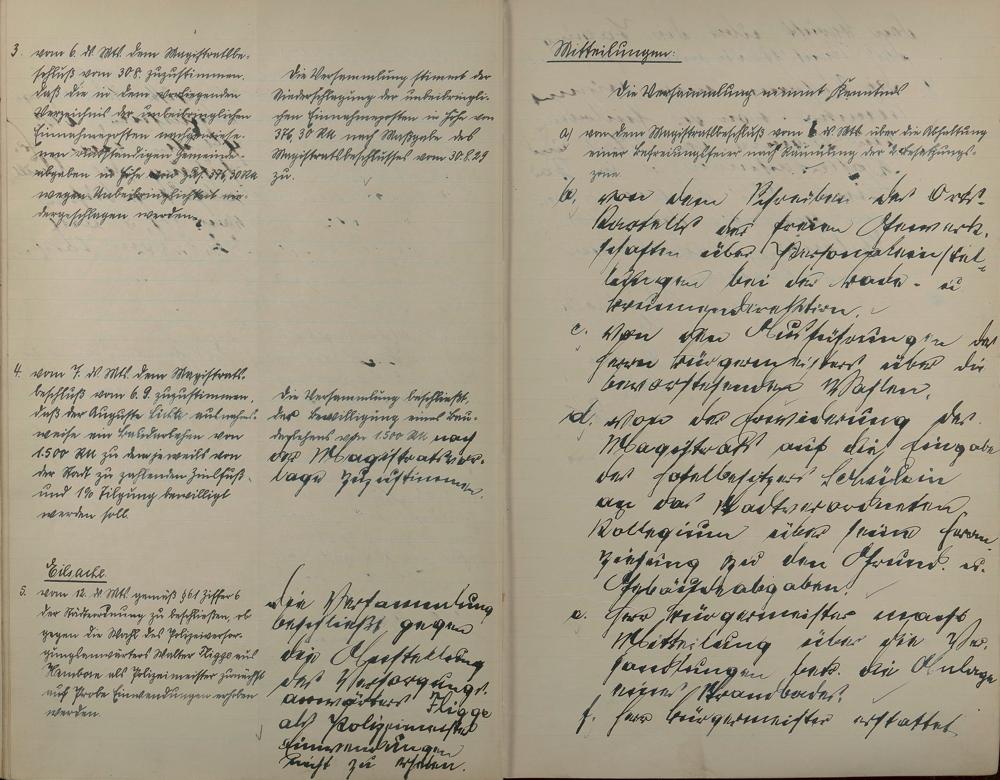 3. vom 6. d. Mts. dem Magistratsbe-
schluß vom 30.8. zuzustimmen,
daß die in dem vorliegenden
Verzeichnis der unbeibringlichen
Einnahmeposten nachgewiese-
nen rückständigen Gemeinde-
abgaben in Höhe von 376,30 RM
wegen Unbeibringlichkeit nie-
dergeschlagen werden.
Die Versammlung stimmt der
Niederschlagung der unbeibringli-
chen Einnahmeposten in Höhe von
376,30 RM nach Maßgabe des
Magistratsbeschlusses vom 30.8.29
zu.
4. vom 7. d. Mts. dem Magistrats-
beschluß vom 6.9. zuzustimmen,
daß der Auguste ausnahms-
weise ein Baudarlehen von
1500 RM zu dem jeweils von
der Stadt zu zahlenden Zinsfuß
und 1% Tilgung bewilligt
werden soll.
Die Versammlung beschließt,
der Bewilligung eines Bau-
darlehens von 1.500 RM nach
der Magistratsvor-
lage zuzustimmen.
Eilsache
5. vom 12. d. Mts. gemäß § 61 Ziffer 6
der Städteordnung zu beschließen, ob
gegen die Wahl des Polizeiversor-
gungsanwärters Walter Flügge aus
als Polizeimeister zunächst
auf Probe Einwendungen erhoben
werden.
Die Versammlung
beschließt gegen
die Anstellung
des Versorgungs-
anwärters Flügge
als Polizeimeister
Einwendungen
nicht zu erheben.
Mitteilungen:
Die Versammlung nimmt Kenntnis
a) von dem Magistratsbeschluß vom 6. d. Mts. über die Abhaltung
einer Befreiungsfeier nach Räumung der 2. Besatzungs-
zone
b, von dem Schreiben des Orts-
kartells der freien Gewerk-
schaften über Personaleinstel-
lungen bei der Bade- u
Brunnendirektion.
c. von den Ausführungen des
Herrn Bürgermeisters über die
bevorstehenden Wahlen.
d, von der Erwiderung des
Magistrats auf die Eingabe
des Hotelbesitzers
an das Stadtverordneten
Kollegium über seine Heran-
ziehung zu den Grund- u.
Gebäudeabgaben.
e. Herr Bürgermeister macht
Mitteilung über die Ver-
handlungen betr. die Anlage
eines Strandbades.
f. Herr Bürgermeister erstattet